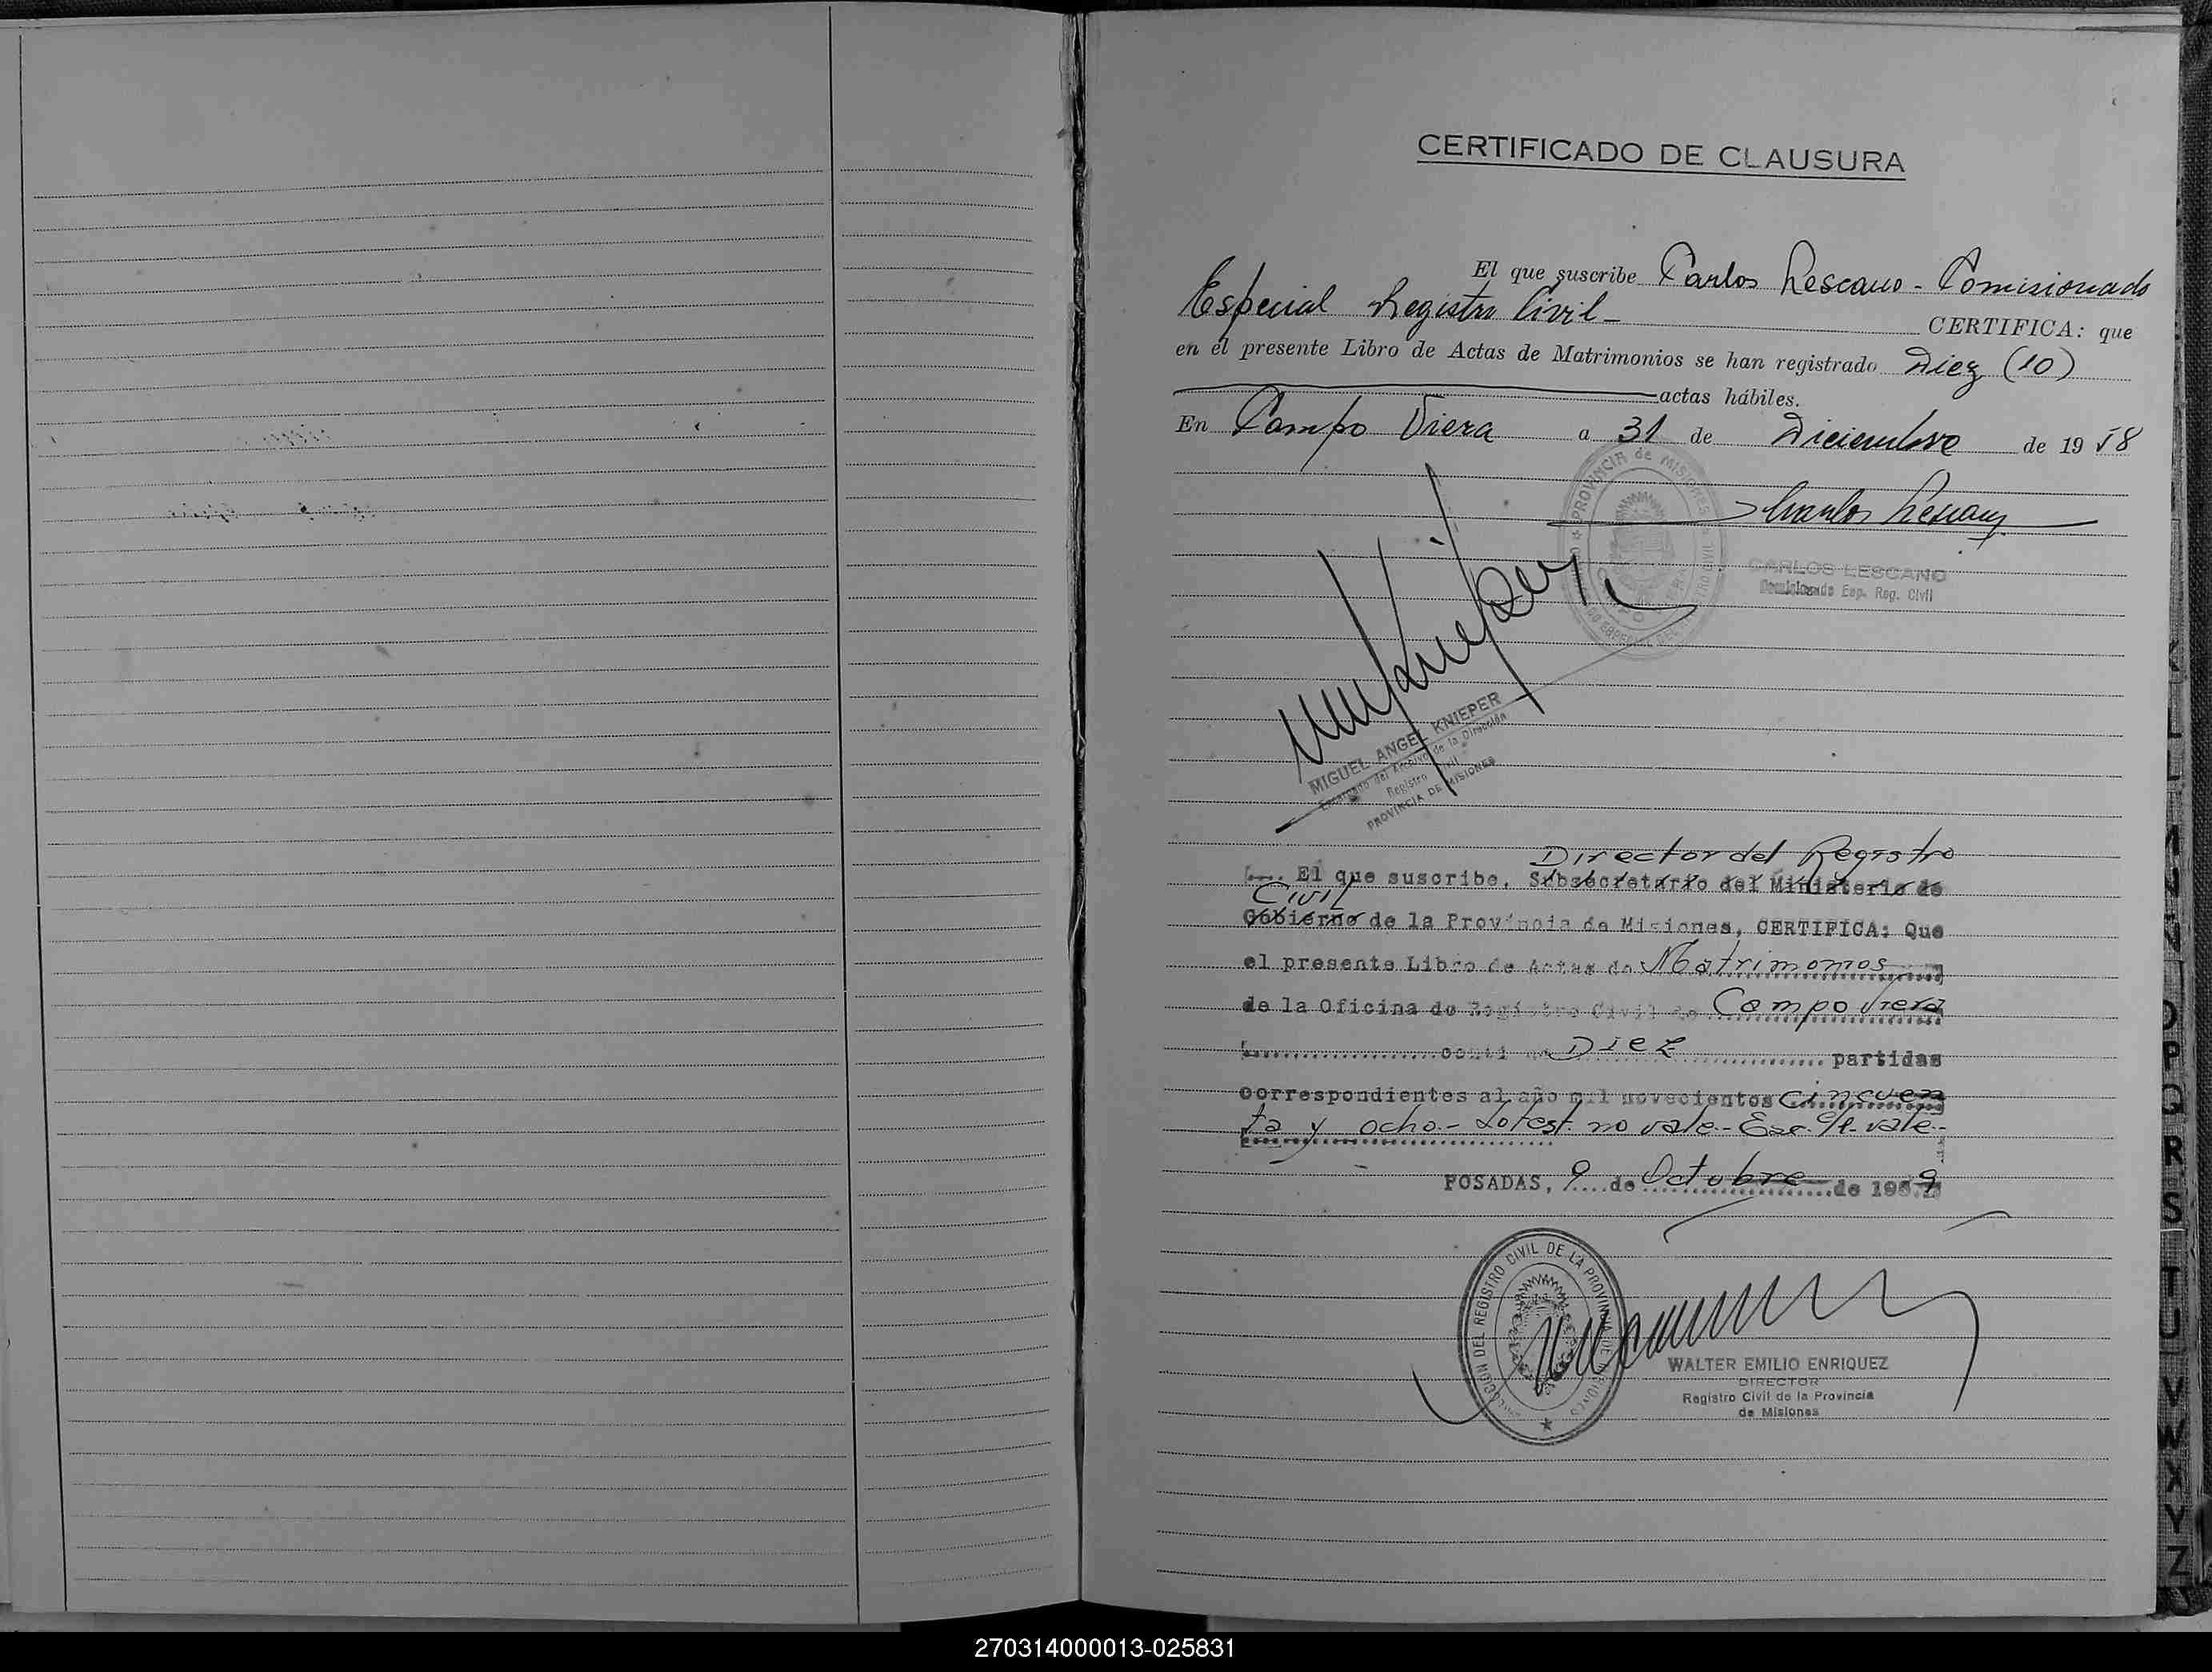 CERTIFICADO DE CLAUSURA
El que suscribe Carlos Lescano - Comisionado
Especial Registro Civil - CERTIFICA: que
en el presente Libro de Actas de Matrimonios se han registrado Diez (10)
actas hábiles.
En Campo Viera a 31 de Diciembre de 1958
PROVINCIA de MISIONES
Carlos Lescano
CARLOS LESCANO
Comisionado Esp. Reg. Civil
MIGUEL ANGEL KNIEPER
Encargado del Archivo de la Dirección
Registro Civil
PROVINCIA DE MISIONES
Director del Registro
El que suscribe, Subsecretario del Ministerio de
Civil
Gobierno de la Provincia de Misiones, CERTIFICA: Que
el presente Libro de Actas de Matrimonios
de la Oficina de Registro Civil de Campo Viera
Diez partidas
correspondientes al año mil novecientos cincuen
ta y ocho.- Lo test. no vale.- E/l. vale.-
POSADAS, 9 de Octubre de 1959
DIRECCION DEL REGISTRO CIVIL DE LA PROVINCIA DE MISIONES
WALTER EMILIO ENRIQUEZ
DIRECTOR
Registro Civil de la Provincia
de Misiones
K
L
M
N
O
P
Q
R
S
T
U
V
W
X
Y
Z
270314000013-025831